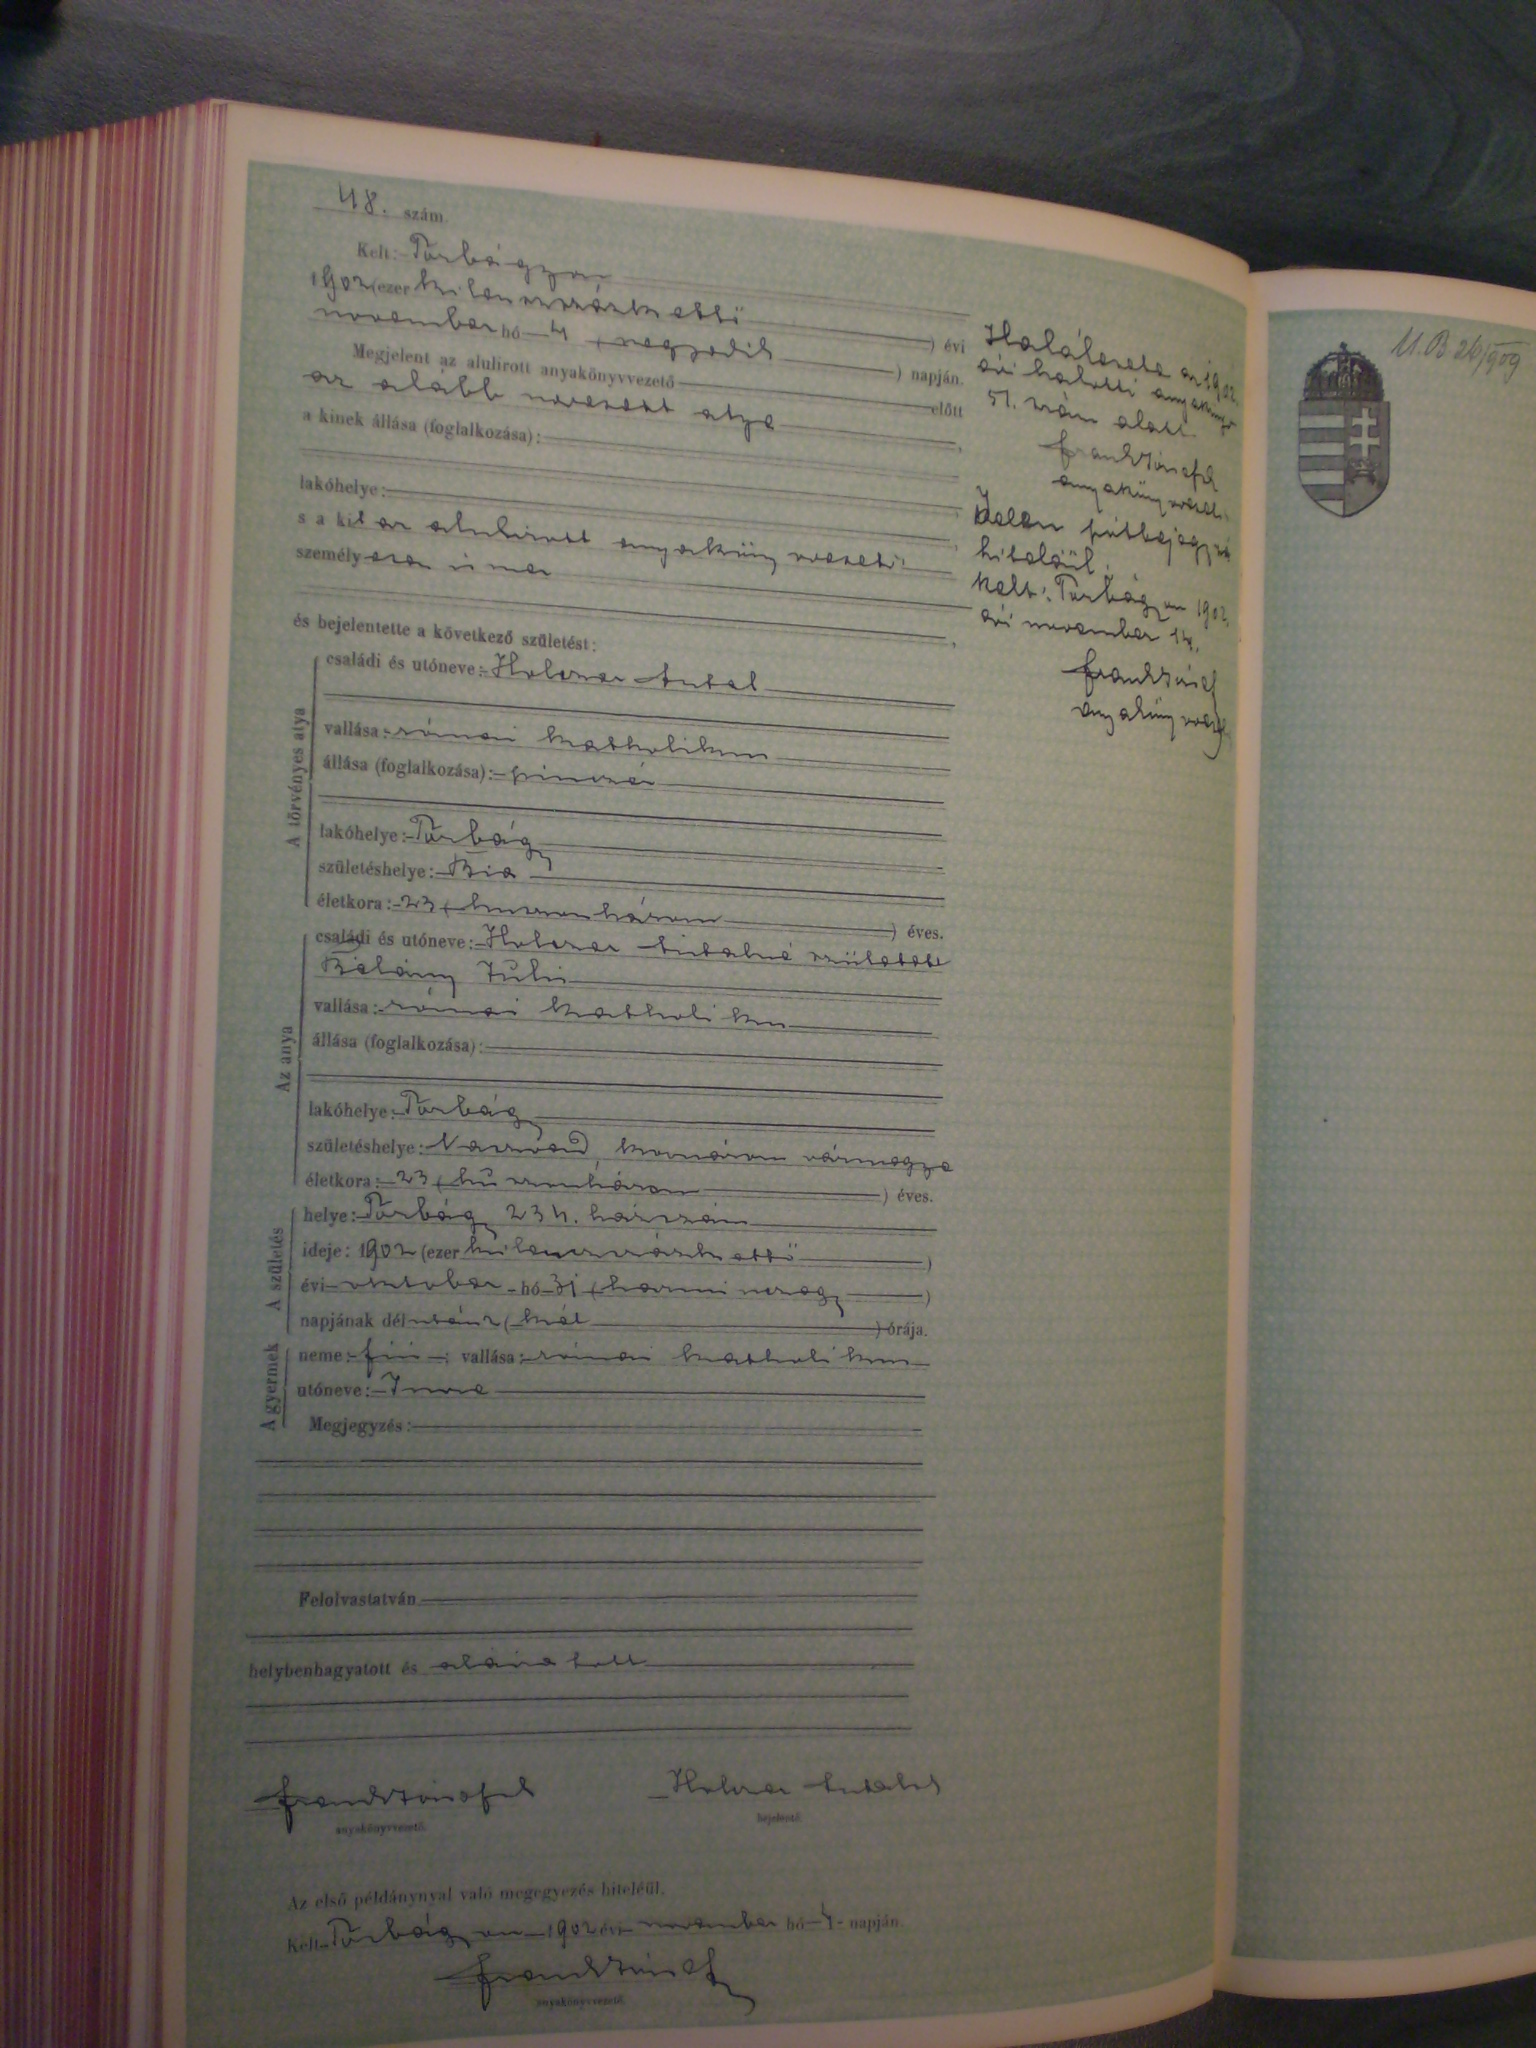 48. szám
Kelt: Torbágyon
1902 (ezer kilenczszázkettő
) évi
november hó 4 (negyedik
) napján.
Megjelent az alulirott anyakönyvvezető
előtt
az alább nevezett atya
a kinek állása (foglalkozása):
lakóhelye:
s a kit az alulirott anyakönyvvezető
személyesen ismer
és bejelentette a következő születést:
A törvényes atya
családi és utóneve: Holczer Antal
vallása: római katholikus
állása (foglalkozása): pinczér
lakóhelye: Torbágy
születéshelye: Bia
életkora: 23 (huszonhárom
) éves.
Az anya
családi és utóneve: Holczer Antalné született
Juli
vallása: római katholikus
állása (foglalkozása):
lakóhelye: Torbágy
születéshelye: Naszvad, komárom vármegye
életkora: 23 (huszonhárom
) éves.
A születés
helye: Torbágy 234. házszám
ideje: 1902 (ezer kilenczszázkettő )
évi október hó 31 (harminczegy )
napjának délután 2 (két ) órája.
A gyermek
neme: fiú ; vallása: római katholikus
utóneve: Imre
Megjegyzés:
Felolvastatván
helybenhagyatott és aláiratott
Frank József Holczer Antal
anyakönyvvezető. bejelentő.
Az első példánynyal való megegyezés hiteléül.
Kelt Torbágyon 1902 évi november hó 4 napján
Frank József
anyakönyvvezető.
Halálesete az 1902.
évi halotti anyakönyv
51. szám alatt.
Frank József
anyakönyvvezető
Jelen pótbejegyzés
hiteléül.
Kelt: Torbágyon 1902.
évi november 14.
Frank József
anyakönyvvezető
M.B 26/909